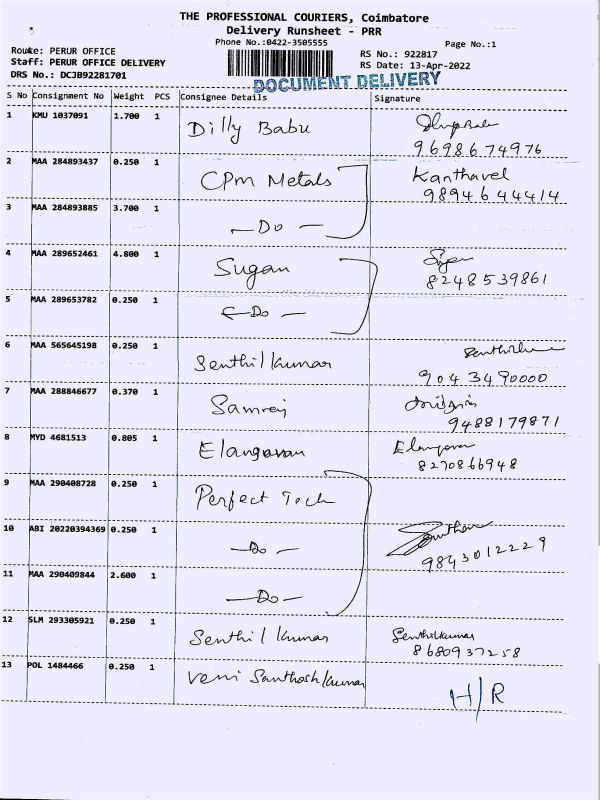 THE PROFESSIONAL COURIERS, Coimbatore
Delivery Runsheet - PRR
Phone No.:0422-3505555
Page No.:1
Route: PERUR OFFICE
RS No.: 922817
Staff: PERUR OFFICE DELIVERY
RS Date: 13-Apr-2022
DRS No.: DCJB92281701
DOCUMENT DELIVERY
S No Consignment No Weight PCS Consignee Details Signature
1 KMU 1037091 1.700 1 Dilly Babu
9698674976
2 MAA 284893437 0.250 1 CPM Metals Kanthavel
9894644414
3 MAA 284893885 3.700 1 — Do —
4 MAA 289652461 4.800 1 Sugan
8248539861
5 MAA 289653782 0.250 1 — Do —
6 MAA 565645198 0.250 1 Senthil kumar
9043490000
7 MAA 288846677 0.370 1 Samraj
9488179871
8 MYD 4681513 0.805 1 Elangovan Elangovan
8270866948
9 MAA 290408728 0.250 1 Perfect Tech
10 ABI 20220394369 0.250 1 — Do —
9843012229
11 MAA 290409844 2.600 1 — Do —
12 SLM 293305921 0.250 1 Senthil kumar Senthilkumar
8680937258
13 POL 1484466 0.250 1 Veni Santhosh kumar H/R